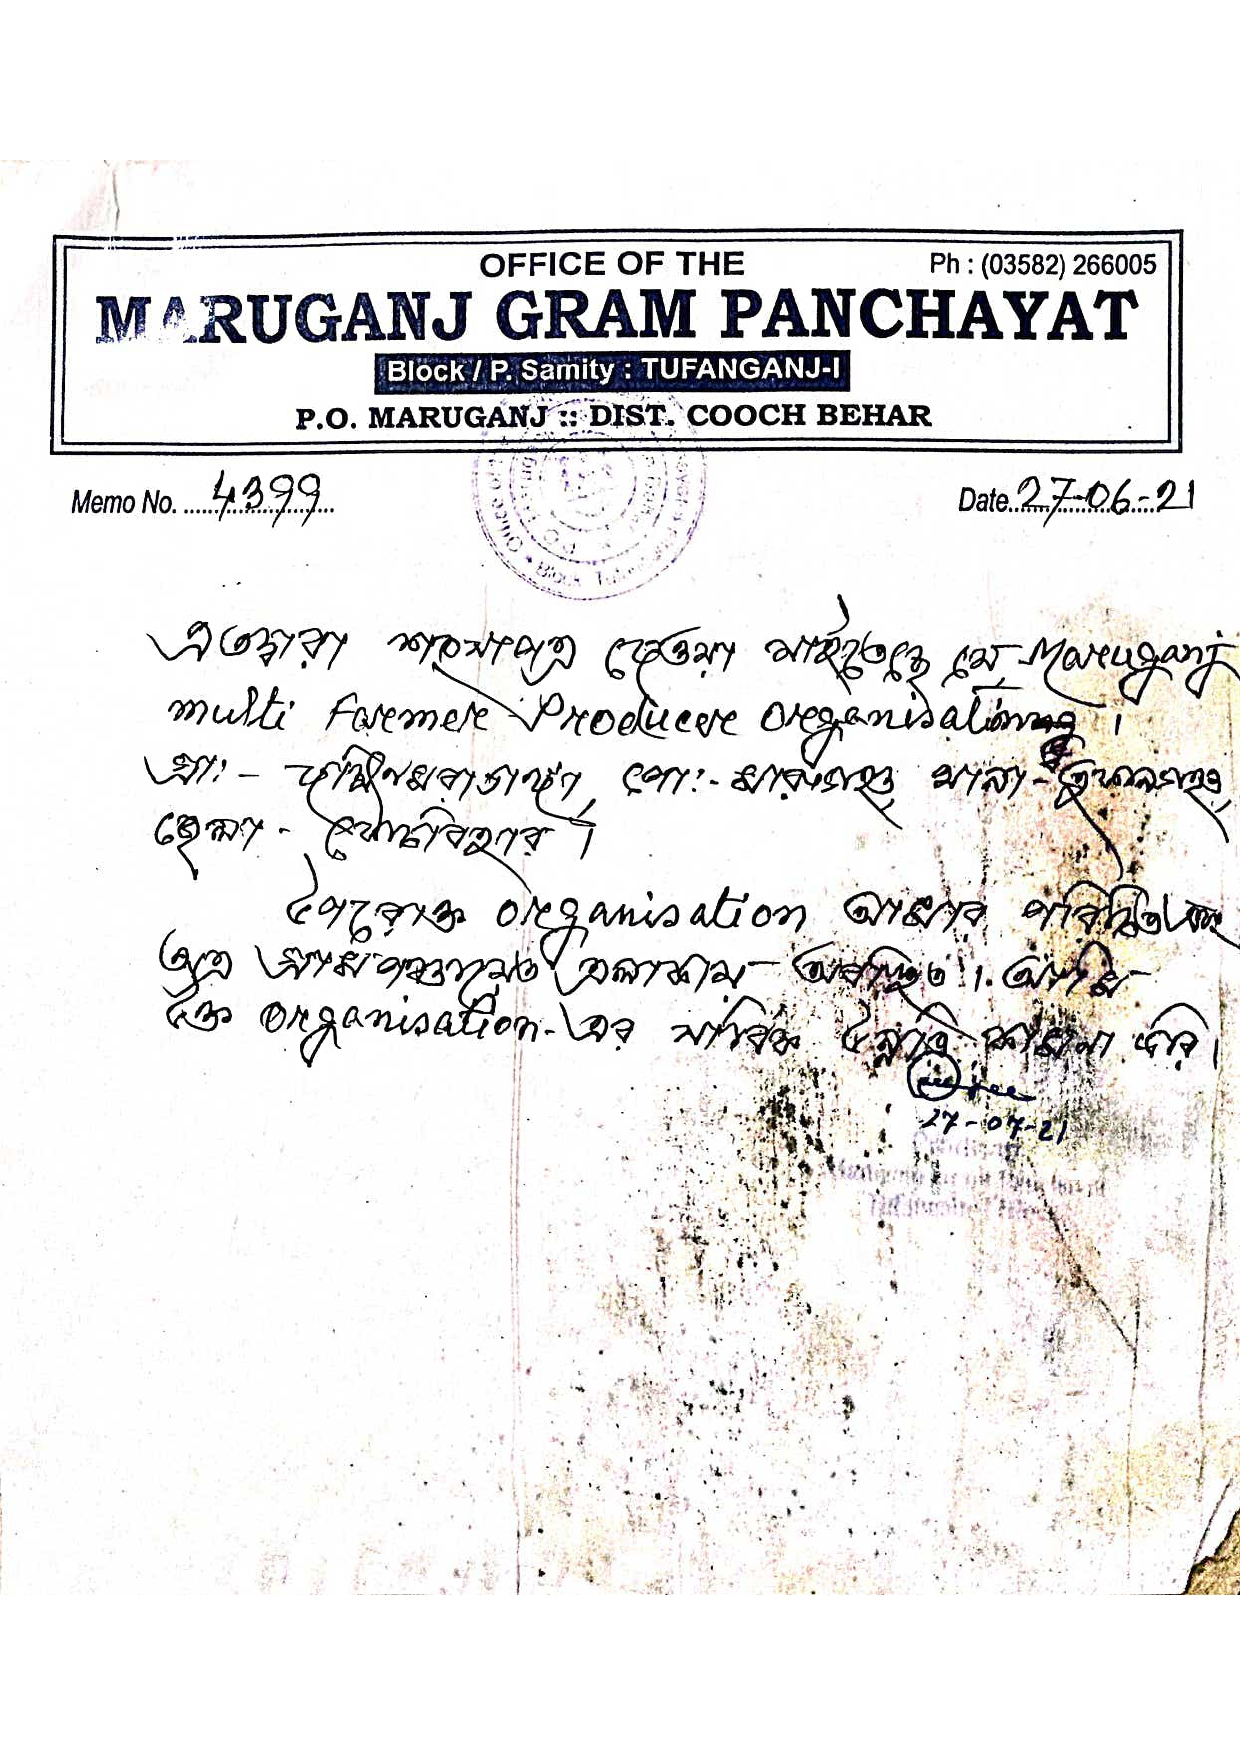 OFFICE OF THE
Ph : (03582) 266005
MARUGANJ GRAM PANCHAYAT
Block / P. Samity : TUFANGANJ-I
P.O. MARUGANJ :: DIST. COOCH BEHAR
Memo No. 4399
Date 27-06-21
এতদ্বারা শংসাপত্র দেওয়া যাইতেছে যে, Maruganj
multi Farmer Producer Organisation ।
গ্রা:- পো:- মারুগঞ্জ, থানা- তুফানগঞ্জ,
জেলা - কোচবিহার ।
উপরোক্ত organisation আমার পরিচিত এবং
অত্র গ্রামপঞ্চায়েত এলাকায় অবস্থিত । আমি
উক্ত organisation-এর সার্বিক উন্নতি কামনা করি ।
27-07-21